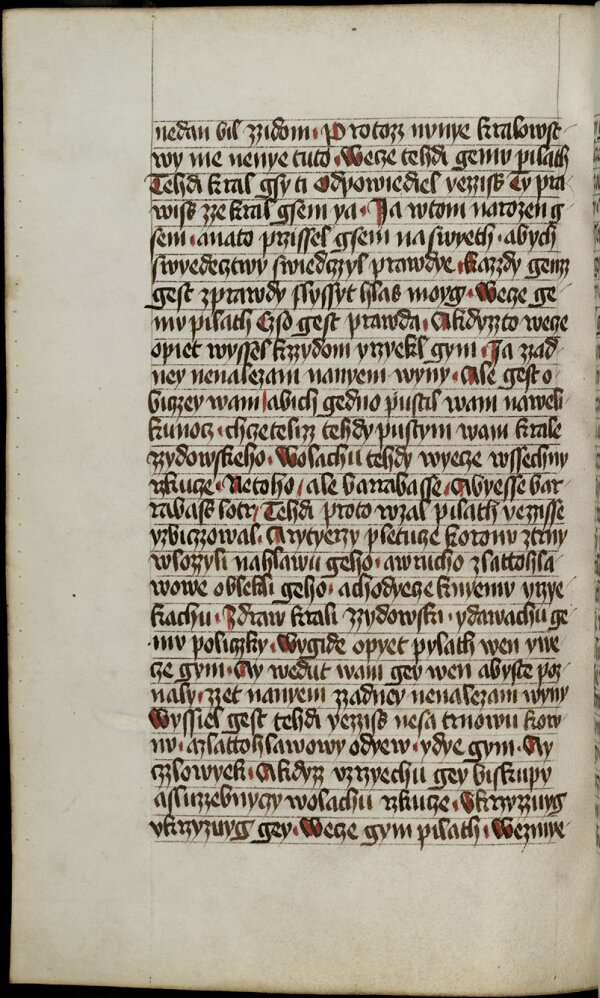 nedan bil zzidom · Protozz nynye kralowst
wy me nenye tuto · Wecze tehdi gemv pilath
Tehdi kral gsy ti Odpowiediel yezziss Ty pra
wiss zze kral gsem ya · Ja wtom narozen g
sem · anato przissel gsem na swyeth · abych
swyedecztwy swiedczyl prawdye · Kazzdy genz
gest zprawdy slyssyt hlas moyg · Wecze ge
mv pilath Czso gest prawda · Akdyzzto wecze
opiet wyssel kzzydom yrzyekl gym · Ja zzad
ney nenalezam nanyem wyny · Ale gest o
biczzey wam abich gedno pustil wam naweli
kunocz · chczetelizz tehdy pustym wam krale
zzydowskeho · Wolachu tehdy wyecze wssechny
rzkucze · Netoho / ale barrabasse · Abyesse bar
rabass lotr / Tehdi proto wzal pilath yezzisse
yzbiczzowal · Arytyerzy pletucze korony ztrny
wlozyli nahlawu geho · awrucho zlattohla
wowe oblekli geho · achodyecze knyemv yrzye
kachu · Zdraw krali zzydowski · ydawachu ge
mv policzky · Wygide opyet pylath wen ywe
cze gym · Ay wedut wam gey wen abyste poz
naly · zzet nanyem zzadney nenalezam wyny
Wyssiel gest tehdi yezziss nesa trnowu korv
nv · azlattohlawowy odyew · ydye gym · Ay
czzlowyek · Akdyzz vzrzyechu gey biskupy
asluzzebnyczy wolachu rzkucze · Vkrzyzzuyg
vkrzyzuyg gey · Wecze gym pilath · Wezmye